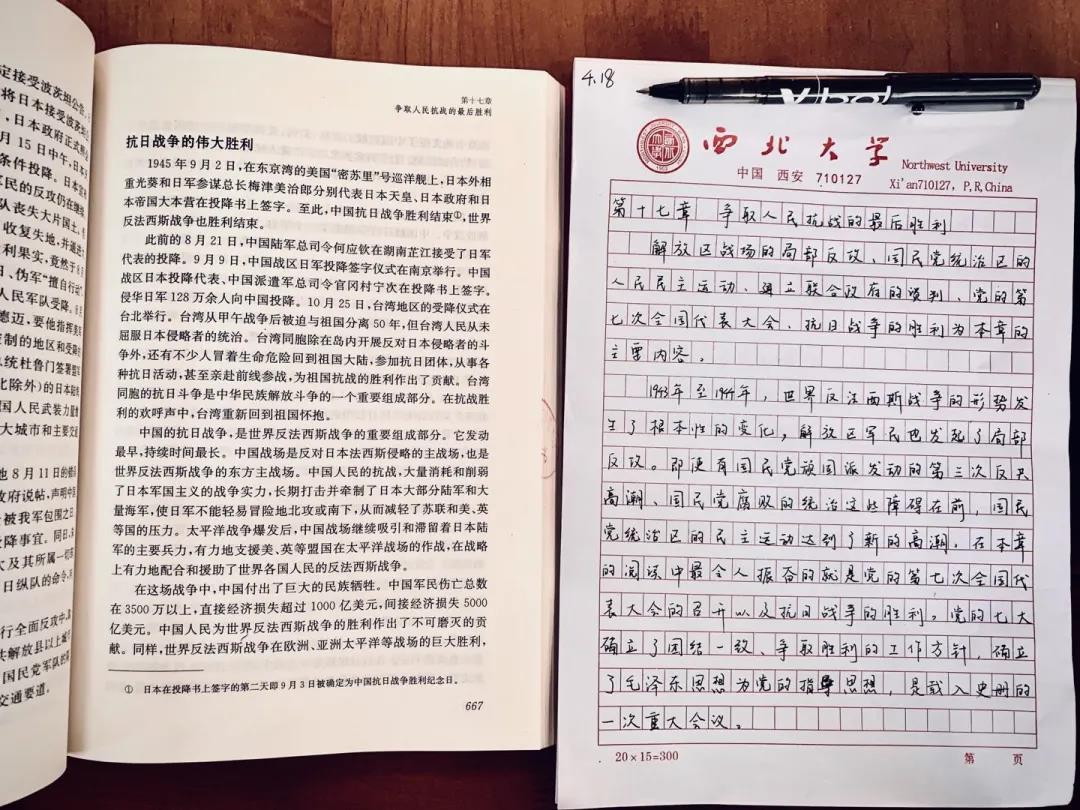 定接受波茨坦公告
将日本接受波茨坦
日本政府正式
月15日中午,日本
条件投降。
军民的反攻仍在继续
队丧失大片国土,
收复失地,并逼近
利果实,竟然于8月
日、伪军“擅自行动”
人民军队受降。
德迈,要他指挥美军
控制的地区和受降的
总统杜鲁门签署盟军
北除外)的日本陆
国人民武装力量
大城市和主要交通
8月11日的
政府说帖,声明中国
被我军包围之日
受降事宜。同日,朱
及其所属一切
日纵队的命令,
行全面反攻中,
共解放县以上城市
国民党军队的
交通要道。
第十七章
争取人民抗战的最后胜利
抗日战争的伟大胜利
1945年9月2日,在东京湾的美国“密苏里”号巡洋舰上,日本外相
重光葵和日军参谋总长梅津美治郎分别代表日本天皇、日本政府和日
本帝国大本营在投降书上签字。至此,中国抗日战争胜利结束①,世界
反法西斯战争也胜利结束。
此前的8月21日,中国陆军总司令何应钦在湖南芷江接受了日军
代表的投降。9月9日,中国战区日军投降签字仪式在南京举行。中国
战区日本投降代表、中国派遣军总司令官冈村宁次在投降书上签字。
侵华日军128万余人向中国投降。10月25日,台湾地区的受降仪式在
台北举行。台湾从甲午战争后被迫与祖国分离50年,但台湾人民从未
屈服日本侵略者的统治。台湾同胞除在岛内开展反对日本侵略者的斗
争外,还有不少人冒着生命危险回到祖国大陆,参加抗日团体,从事各
种抗日活动,甚至亲赴前线参战,为祖国抗战的胜利作出了贡献。台湾
同胞的抗日斗争是中华民族解放斗争的一个重要组成部分。在抗战胜
利的欢呼声中,台湾重新回到祖国怀抱。
中国的抗日战争,是世界反法西斯战争的重要组成部分。它发动
最早,持续时间最长。中国战场是反对日本法西斯侵略的主战场,也是
世界反法西斯战争的东方主战场。中国人民的抗战,大量消耗和削弱
了日本军国主义的战争实力,长期打击并牵制了日本大部分陆军和大
量海军,使日军不能轻易冒险地北攻或南下,从而减轻了苏联和美、英
等国的压力。太平洋战争爆发后,中国战场继续吸引和滞留着日本陆
军的主要兵力,有力地支援美、英等盟国在太平洋战场的作战,在战略
上有力地配合和援助了世界各国人民的反法西斯战争。
在这场战争中,中国付出了巨大的民族牺牲。中国军民伤亡总数
在3500万以上,直接经济损失超过1000亿美元,间接经济损失5000
亿美元。中国人民为世界反法西斯战争的胜利作出了不可磨灭的贡
献。同样,世界反法西斯战争在欧洲、亚洲太平洋等战场的巨大胜利,
① 日本在投降书上签字的第二天即9月3日被确定为中国抗日战争胜利纪念日。
667
4.18
西北大学
Northwest University
中国 西安 710127
Xi'an710127, P,R,China
第十七章 争取人民抗战的最后胜利
解放区战场的局部反攻、国民党统治区的
人民民主运动、建立联合政府的谈判、党的第
七次全国代表大会、抗日战争的胜利为本章的
主要内容。
1943年至1944年,世界反法西斯战争的形势发
生了根本性的变化,解放区军民也发起了局部
反攻。即便有国民党顽固派发动的第三次反共
高潮、国民党腐败的统治这些障碍在前,国民
党统治区的民主运动达到了新的高潮。在本章
的阅读中最令人振奋的就是党的第七次全国代
表大会的召开以及抗日战争的胜利。党的七大
确立了团结一致、争取胜利的工作方针,确立
了毛泽东思想为党的指导思想,是载入史册的
一次重大会议。
20×15=300
第 页